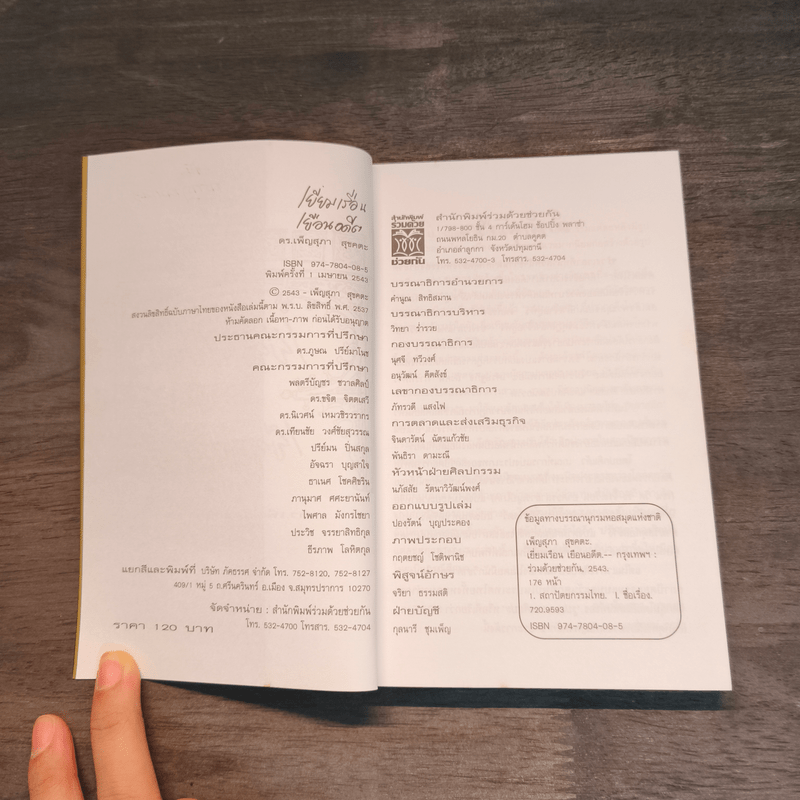 เยี่ยมเรือน
เยือนอดีต
ดร.เพ็ญสุภา สุขคตะ
ISBN 974-7804-08-5
พิมพ์ครั้งที่ 1 เมษายน 2543
© 2543 - เพ็ญสุภา สุขคตะ
สงวนลิขสิทธิ์ฉบับภาษาไทยของหนังสือเล่มนี้ตาม พ.ร.บ. ลิขสิทธิ์ พ.ศ. 2537
ห้ามคัดลอก เนื้อหา-ภาพ ก่อนได้รับอนุญาต
ประธานคณะกรรมการที่ปรึกษา
ดร.ภูษณ ปรีย์มาโนช
คณะกรรมการที่ปรึกษา
พลตรีบัญชร ชวาลศิลป์
ดร.ขจิต จิตตเสวี
ดร.นิเวศน์ เหมวชิรวรากร
ดร.เทียนชัย วงศ์ชัยสุวรรณ
ปรีย์มน ปิ่นสกุล
อัจฉรา บุญสาใจ
ธาเนศ โชคศิขริน
ภานุมาศ ศศะยานันท์
ไพศาล มังกรไชยา
ประวิช จรรยาสิทธิกุล
ธีรภาพ โลหิตกุล
แยกสีและพิมพ์ที่ บริษัท ภัคธรรศ จำกัด โทร. 752-8120, 752-8127
409/1 หมู่ 5 ถ.ศรีนครินทร์ อ.เมือง จ.สมุทรปราการ 10270
จัดจำหน่าย : สำนักพิมพ์ร่วมด้วยช่วยกัน
โทร. 532-4700 โทรสาร. 532-4704
ราคา 120 บาท
สำนักพิมพ์
ร่วมด้วย
ช่วยกัน
สำนักพิมพ์ร่วมด้วยช่วยกัน
1/788-800 ชั้น 4 การ์เด้นโฮม ช้อปปิ้ง พลาซ่า
ถนนพหลโยธิน กม.20 ตำบลคูคต
อำเภอลำลูกกา จังหวัดปทุมธานี
โทร. 532-4700-3 โทรสาร. 532-4704
บรรณาธิการอำนวยการ
คำนูณ สิทธิสมาน
บรรณาธิการบริหาร
วิทยา ร่ำรวย
กองบรรณาธิการ
นุศจี ทวีวงศ์
อนุวัฒน์ คิดสังข์
เลขากองบรรณาธิการ
ภัทรวดี แสงไฟ
การตลาดและส่งเสริมธุรกิจ
จินดารัตน์ ฉัตรแก้วชัย
พันธิรา ดามะณี
หัวหน้าฝ่ายศิลปกรรม
นภัสสัย รัตนาวิวัฒน์พงศ์
ออกแบบรูปเล่ม
ปองรัตน์ บุญประคอง
ภาพประกอบ
กฤตยชญ์ โชติพานิช
พิสูจน์อักษร
จริยา ธรรมสติ
ฝ่ายบัญชี
กุลนารี ชุมเพ็ญ
ข้อมูลทางบรรณานุกรมหอสมุดแห่งชาติ
เพ็ญสุภา สุขคตะ.
เยี่ยมเรือน เยือนอดีต.-- กรุงเทพฯ :
ร่วมด้วยช่วยกัน, 2543.
176 หน้า
1. สถาปัตยกรรมไทย. I. ชื่อเรื่อง.
720.9593
ISBN 974-7804-08-5